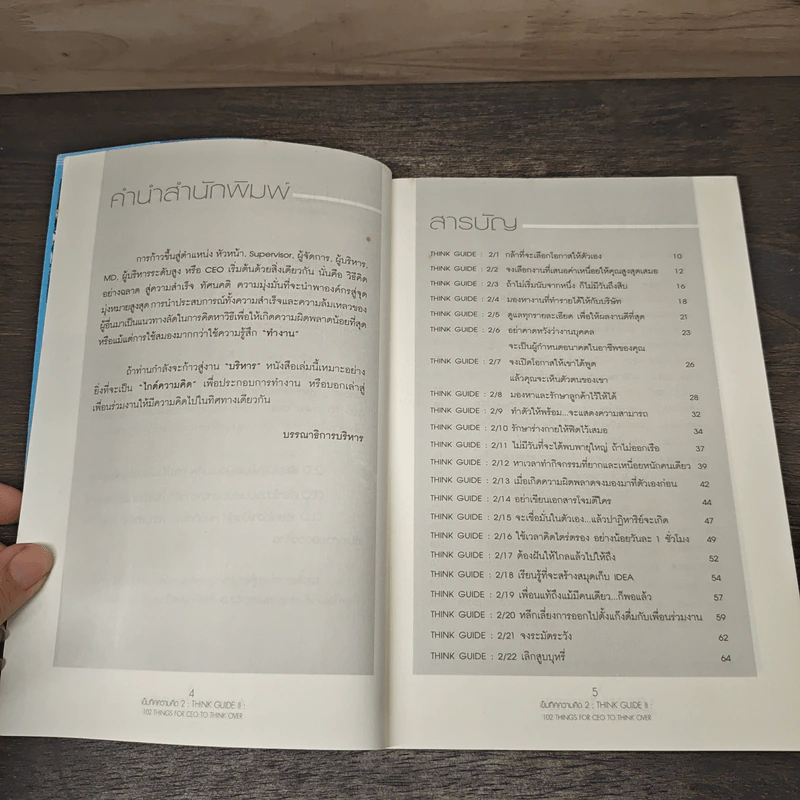 คำนำสำนักพิมพ์
การก้าวขึ้นสู่ตำแหน่ง หัวหน้า, Supervisor, ผู้จัดการ, ผู้บริหาร,
MD, ผู้บริหารระดับสูง หรือ CEO เริ่มต้นด้วยสิ่งเดียวกัน นั่นคือ วิธีคิด
อย่างฉลาด สู่ความสำเร็จ ทัศนคติ ความมุ่งมั่นที่จะนำพาองค์กรสู่จุด
มุ่งหมายสูงสุด การนำประสบการณ์ทั้งความสำเร็จและความล้มเหลวของ
ผู้อื่นมาเป็นแนวทางลัดในการคิดหาวิธีเพื่อให้เกิดความผิดพลาดน้อยที่สุด
หรือแม้แต่การใช้สมองมากกว่าใช้ความรู้สึก "ทำงาน"
ถ้าท่านกำลังจะก้าวสู่งาน "บริหาร" หนังสือเล่มนี้เหมาะอย่าง
ยิ่งที่จะเป็น "ไกด์ความคิด" เพื่อประกอบการทำงาน หรือบอกเล่าสู่
เพื่อนร่วมงานให้มีความคิดไปในทิศทางเดียวกัน
บรรณาธิการบริหาร
4
เข็มทิศความคิด 2 : THINK GUIDE II :
102 THINGS FOR CEO TO THINK OVER
สารบัญ
THINK GUIDE : 2/1 กล้าที่จะเลือกโอกาสให้ตัวเอง 10
THINK GUIDE : 2/2 จงเลือกงานที่เสนอค่าเหนื่อยให้คุณสูงสุดเสมอ 12
THINK GUIDE : 2/3 ถ้าไม่เริ่มนับจากหนึ่ง ก็ไม่มีวันถึงสิบ 16
THINK GUIDE : 2/4 มองหางานที่ทำรายได้ให้กับบริษัท 18
THINK GUIDE : 2/5 ดูแลทุกรายละเอียด เพื่อให้ผลงานดีที่สุด 21
THINK GUIDE : 2/6 อย่าคาดหวังว่างานบุคคล 23
จะเป็นผู้กำหนดอนาคตในอาชีพของคุณ
THINK GUIDE : 2/7 จงเปิดโอกาสให้เขาได้พูด 26
แล้วคุณจะเห็นตัวตนของเขา
THINK GUIDE : 2/8 มองหาและรักษาลูกค้าไว้ให้ได้ 28
THINK GUIDE : 2/9 ทำตัวให้พร้อม...จะแสดงความสามารถ 32
THINK GUIDE : 2/10 รักษาร่างกายให้ฟิตไว้เสมอ 34
THINK GUIDE : 2/11 ไม่มีวันที่จะได้พบพายุใหญ่ ถ้าไม่ออกเรือ 37
THINK GUIDE : 2/12 หาเวลาทำกิจกรรมที่ยากและเหนื่อยหนักคนเดียว 39
THINK GUIDE : 2/13 เมื่อเกิดความผิดพลาดจงมองมาที่ตัวเองก่อน 42
THINK GUIDE : 2/14 อย่าเขียนเอกสารโจมตีใคร 44
THINK GUIDE : 2/15 จะเชื่อมั่นในตัวเอง...แล้วปาฏิหาริย์จะเกิด 47
THINK GUIDE : 2/16 ใช้เวลาคิดไตร่ตรอง อย่างน้อยวันละ 1 ชั่วโมง 49
THINK GUIDE : 2/17 ต้องฝันให้ไกลแล้วไปให้ถึง 52
THINK GUIDE : 2/18 เรียนรู้ที่จะสร้างสมุดเก็บ IDEA 54
THINK GUIDE : 2/19 เพื่อนแท้ถึงแม้มีคนเดียว...ก็พอแล้ว 57
THINK GUIDE : 2/20 หลีกเลี่ยงการออกไปตั้งแก๊งดื่มกับเพื่อนร่วมงาน 59
THINK GUIDE : 2/21 จงระมัดระวัง 62
THINK GUIDE : 2/22 เลิกสูบบุหรี่ 64
5
เข็มทิศความคิด 2 : THINK GUIDE II :
102 THINGS FOR CEO TO THINK OVER